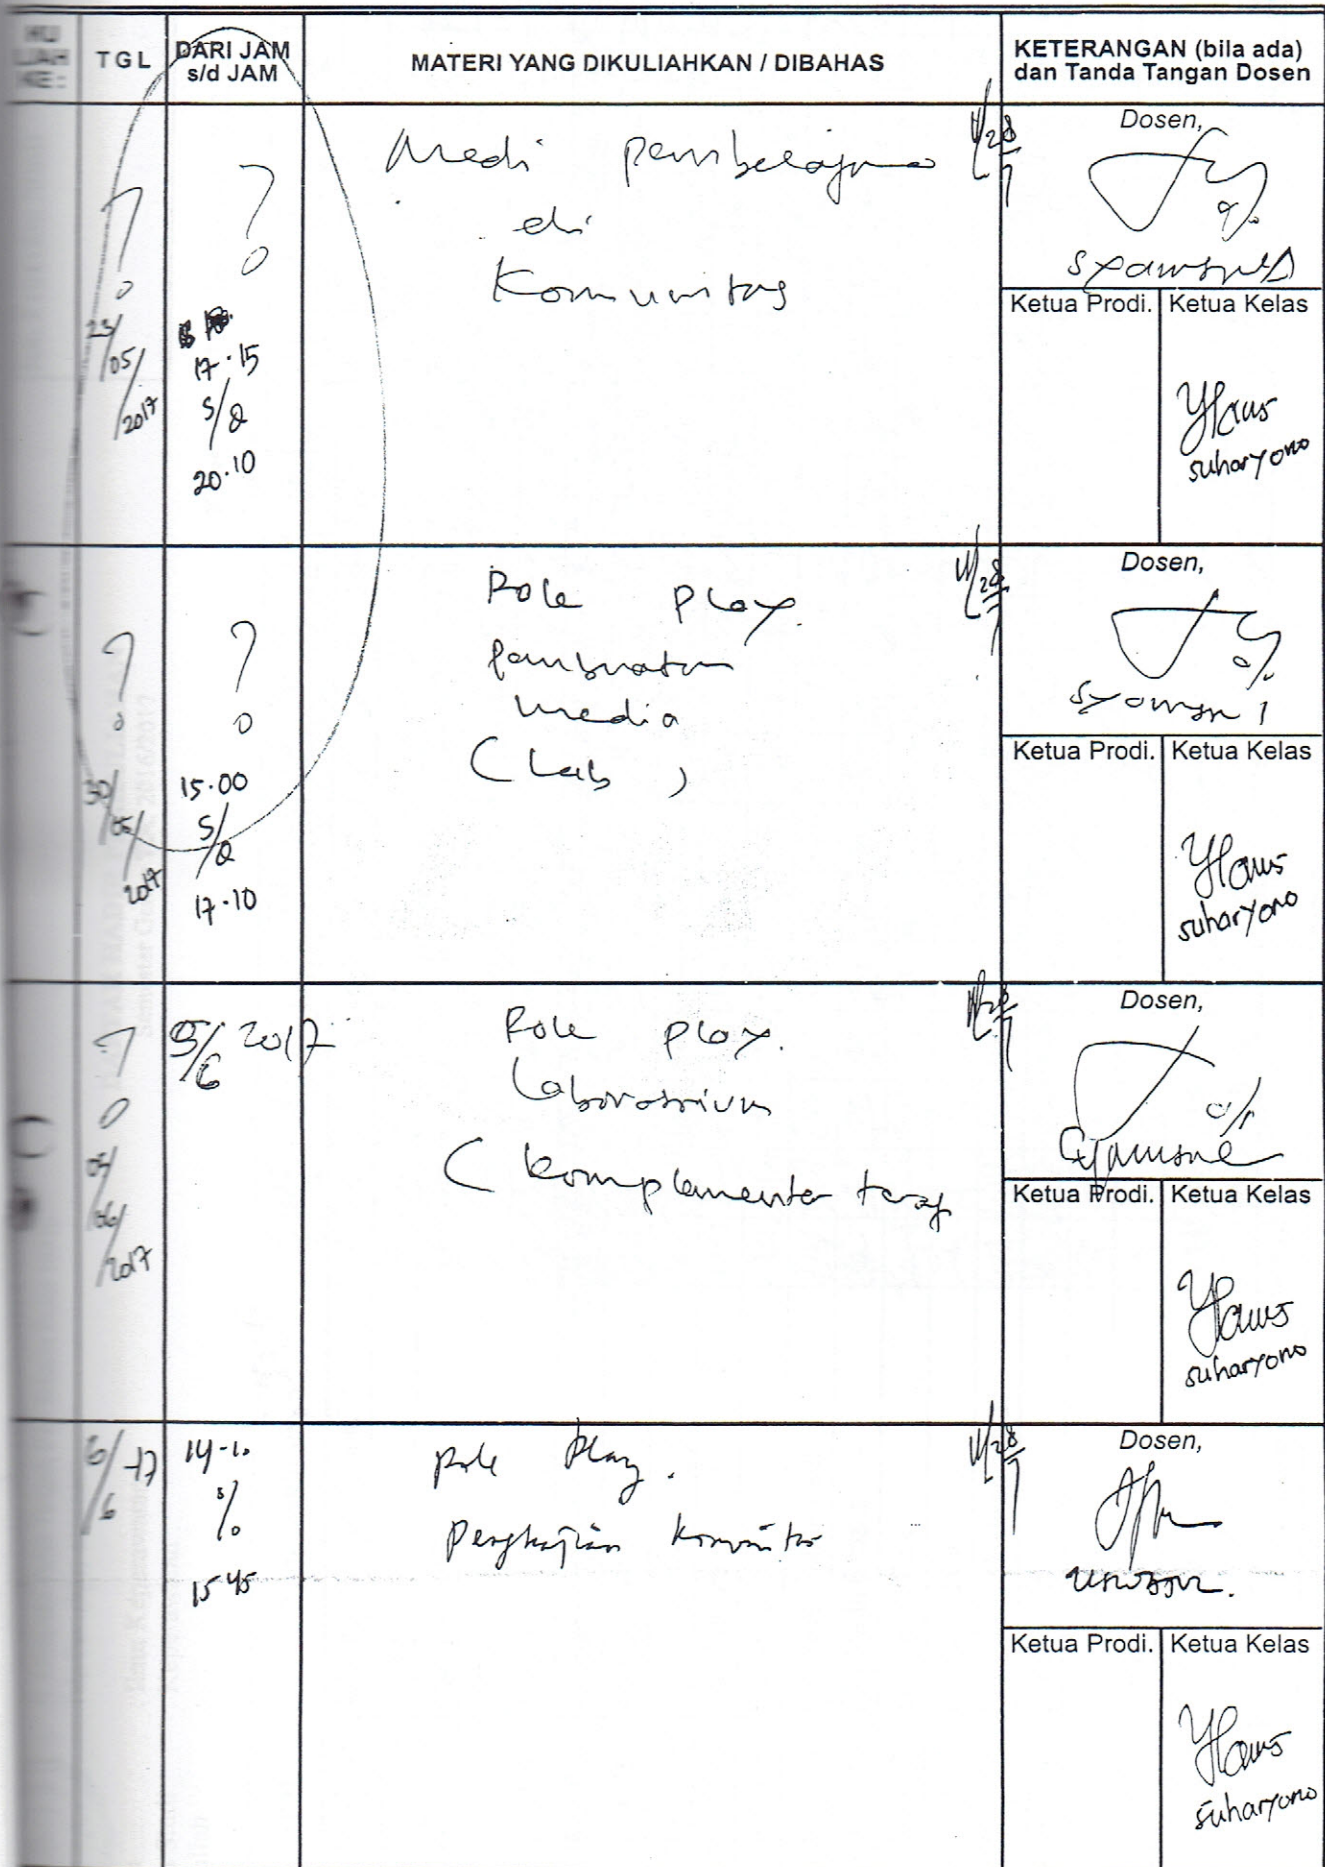 KU
LIAH
KE :
TGL
DARI JAM
s/d JAM
MATERI YANG DIKULIAHKAN / DIBAHAS
KETERANGAN (bila ada)
dan Tanda Tangan Dosen
?
23/05/2017
?
17.15
s/d
20.10
Medi pembelajaran
di
Komunitas
Dosen,
Ketua Prodi.
Ketua Kelas
suharyono
?
30/05/2017
?
15.00
s/d
17.10
Role Play.
pembuatan
media
(Lab)
Dosen,
Ketua Prodi.
Ketua Kelas
suharyono
?
05/06/2017
5/6 2017
Role Play.
Laboratorium
(komplementer
Dosen,
Ketua Prodi.
Ketua Kelas
suharyono
6/6-17
14-10
s/d
15 45
Role Play.
Pengkajian komunitas
Dosen,
Ketua Prodi.
Ketua Kelas
suharyono